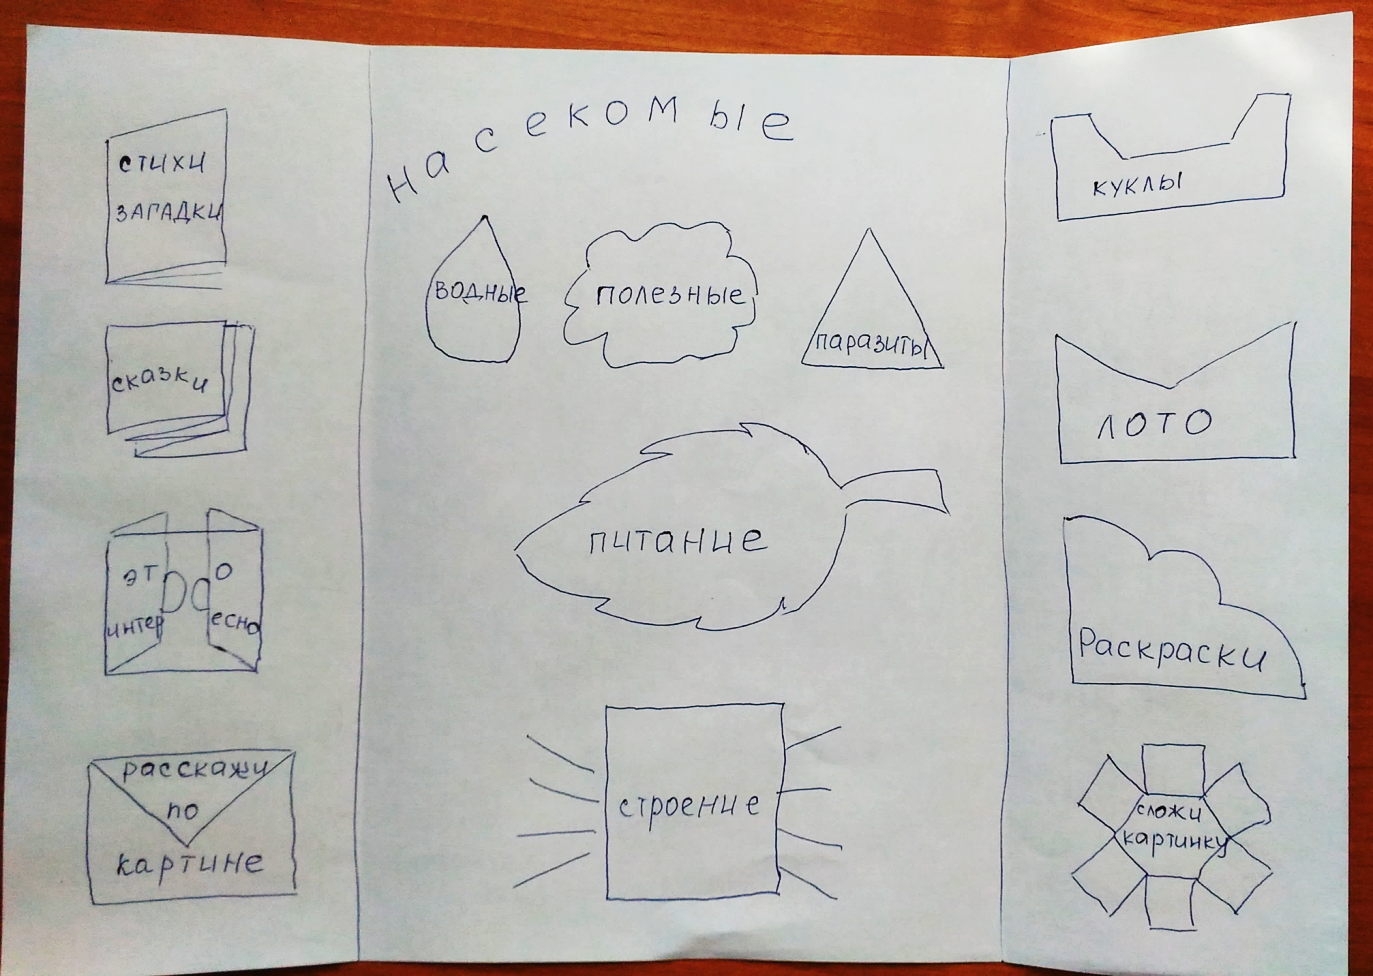 стихи
загадки
сказки
эт о
интер есно
расскажи
по
картине
насекомые
водные
полезные
паразиты
питание
строение
куклы
лото
Раскраски
сложи
картинку